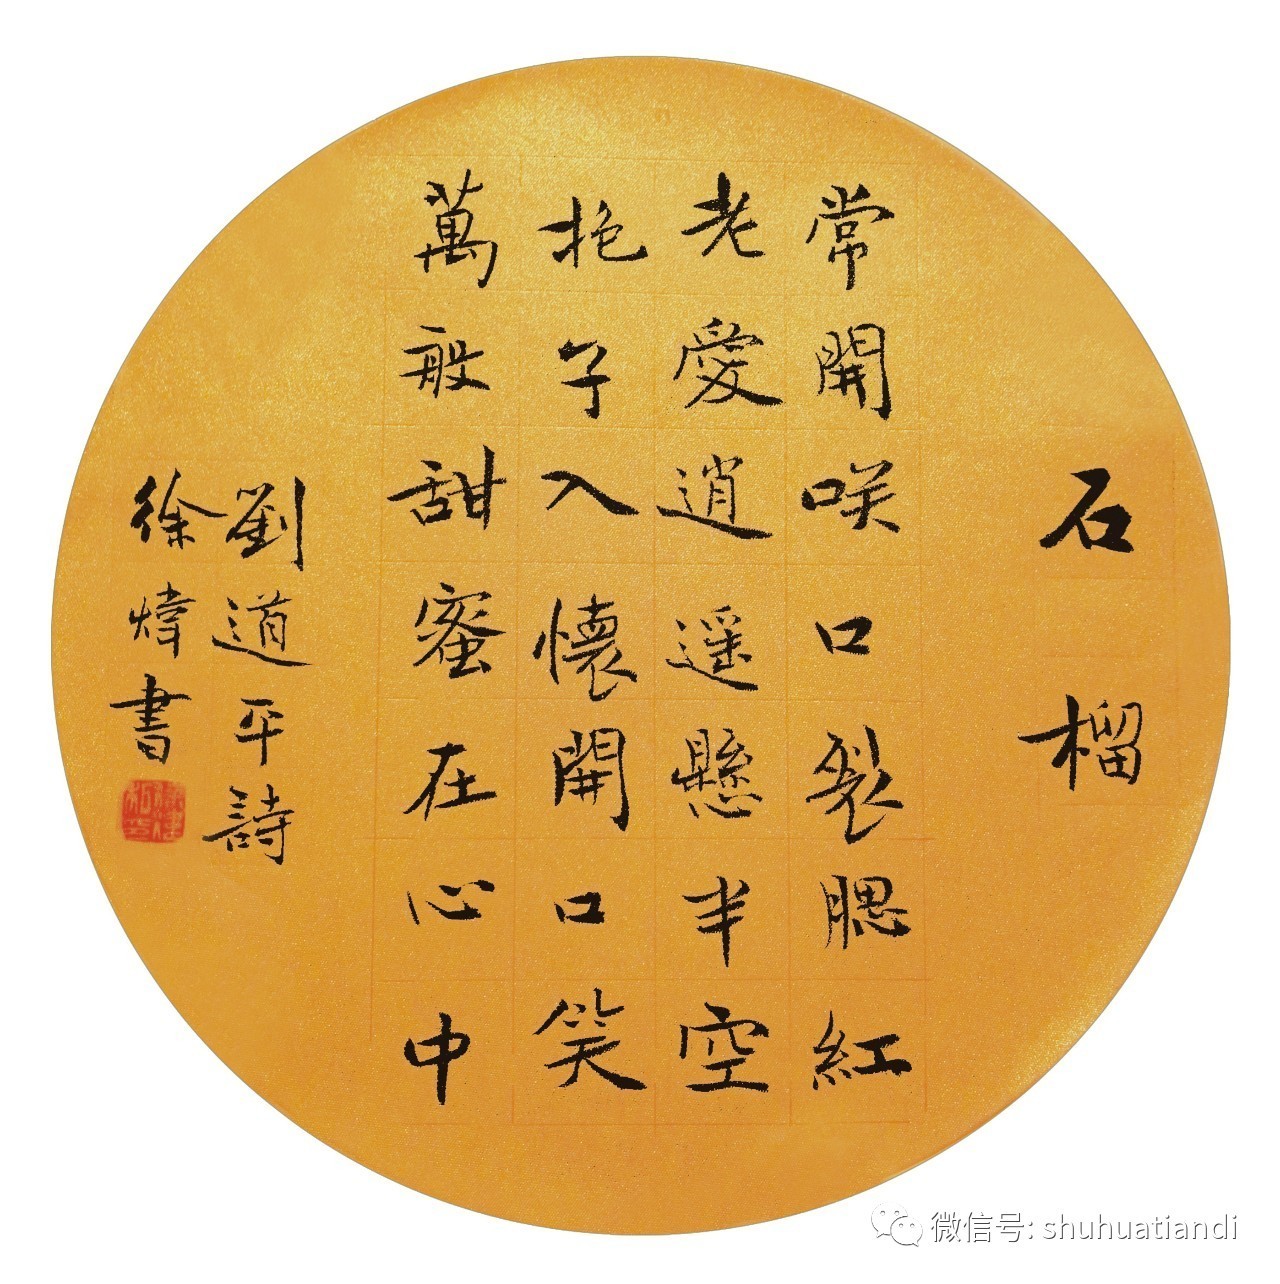 石榴
常開咲口裂腮紅
老愛逍遥懸半空
抱子入懷開口笑
萬般甜蜜在心中
劉道平詩
徐煒書
微信号: shuhuatiandi